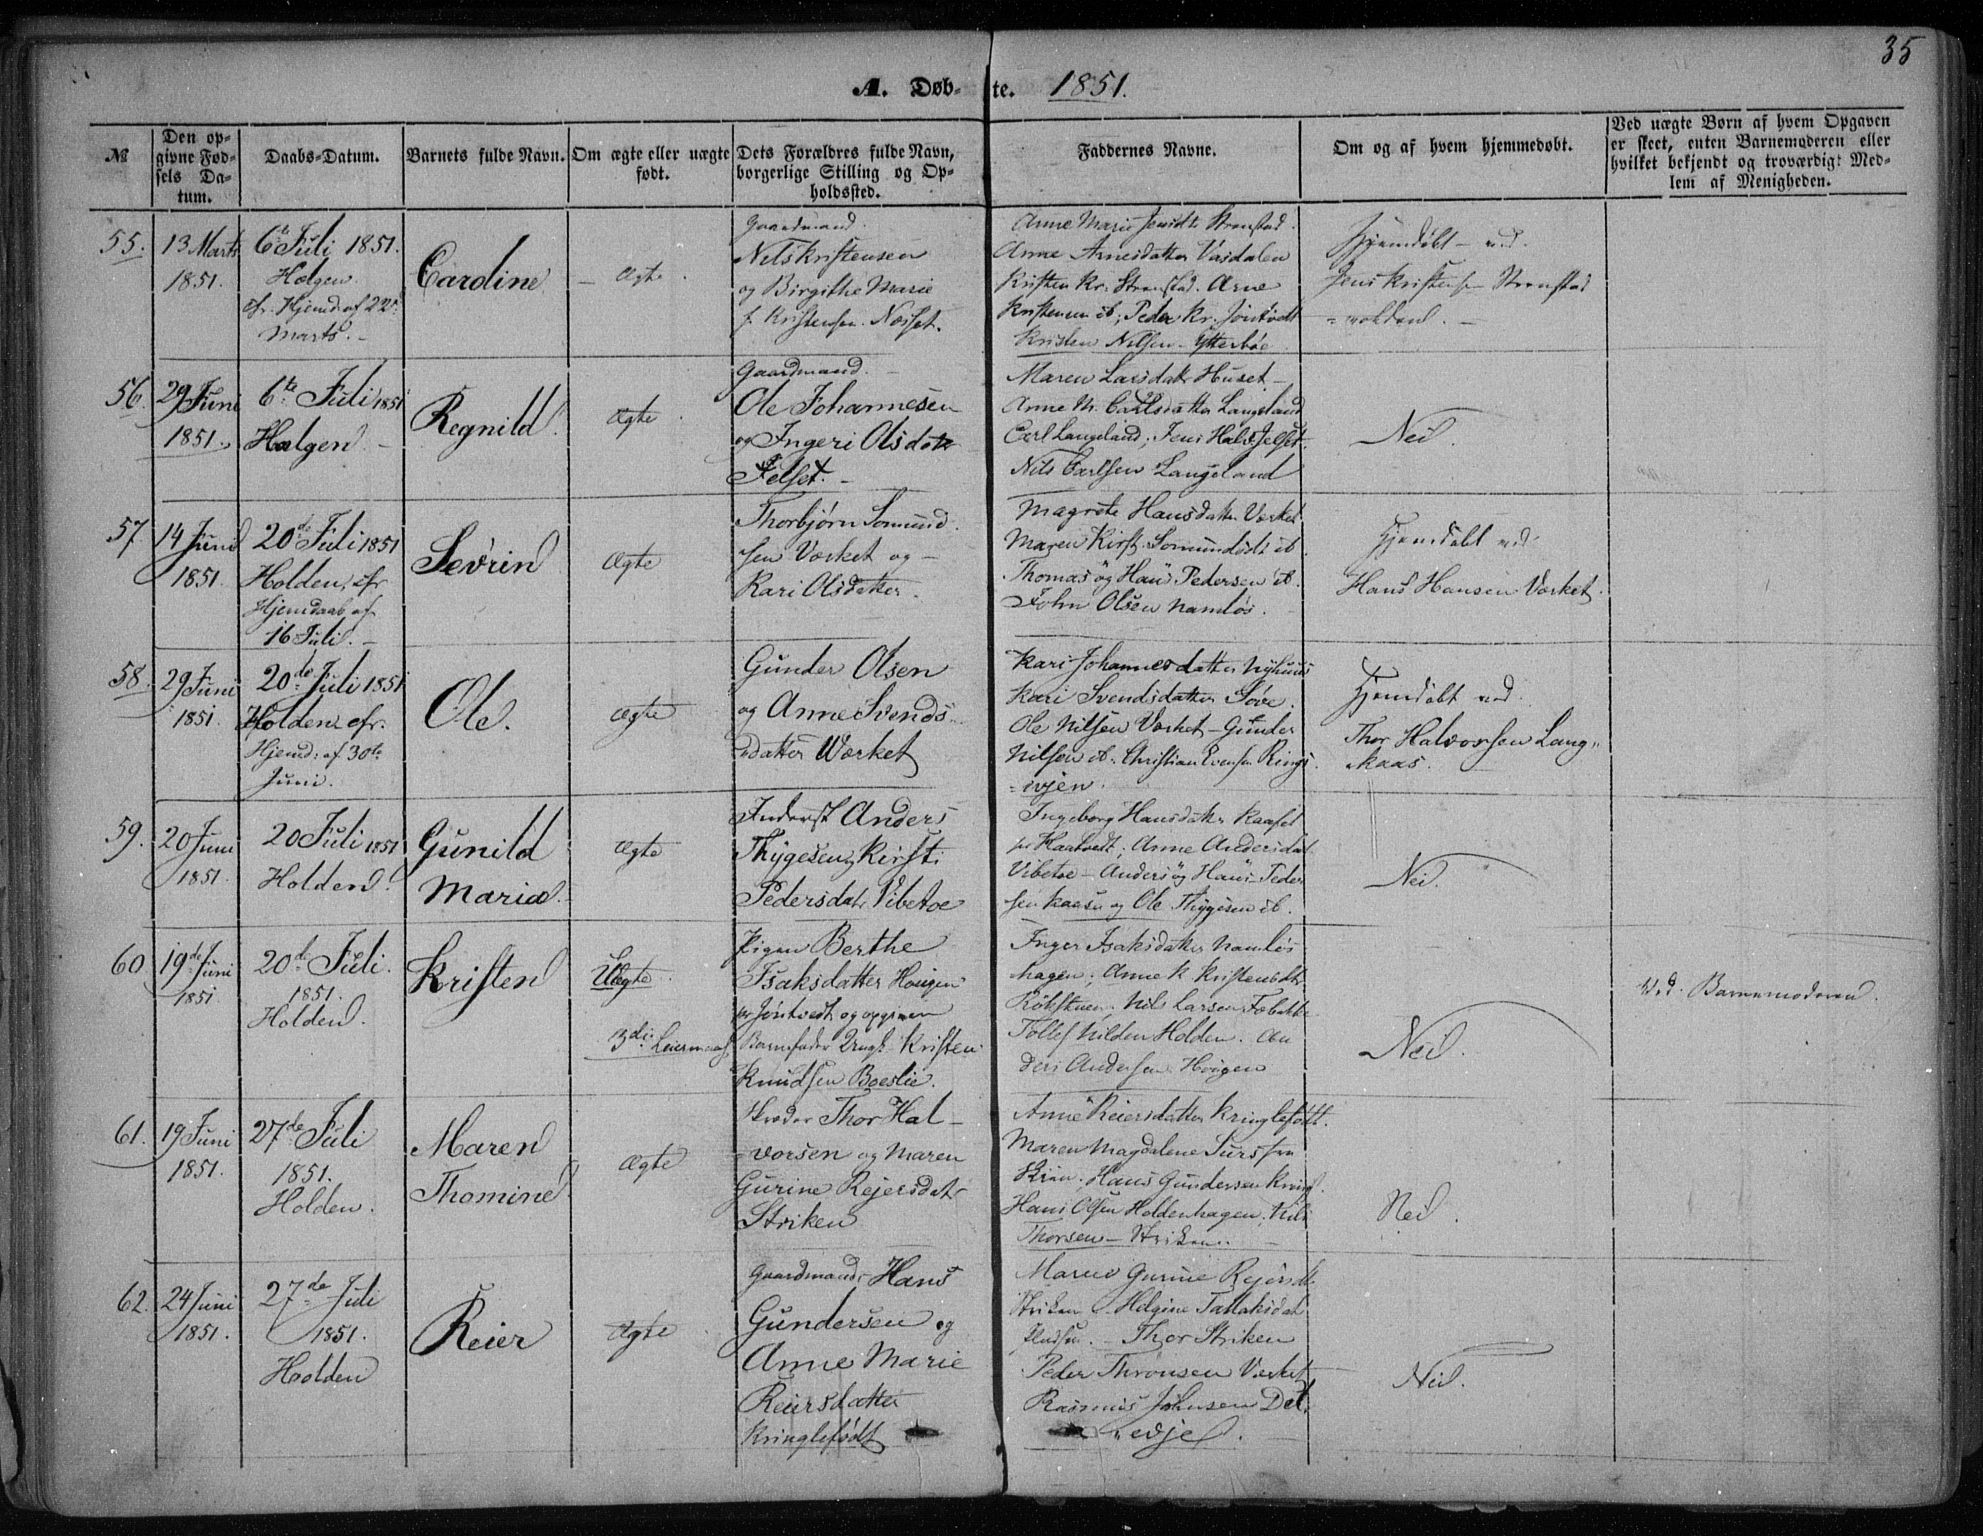 35
A. Døbte. 1851.
№
Den opgivne Fødsels Datum.
Daabs-Datum.
Barnets fulde Navn.
Om ægte eller uægte født.
Dets Forældres fulde Navn, borgerlige Stilling og Opholdssted.
Faddernes Navne.
Om og af hvem hjemmedøbt.
Ved uægte Børn af hvem Opgaven er skeet, enten Barnemoderen eller hvilket bekjendt og troværdigt Medlem af Menigheden.
55.
13 Marts
1851.
6te Juli 1851.
Helgen
Marts.
Cardine
Ægte
Gaardmand
Nils Kristensen
og Birgithe Marie
Kristensen
Anne Marie Stranstad
Anne Arnesdatter Vasdalen
Kristen Kr. Stranstad. Arne
Kristensen ib; Peder Kr.
Kristen Nilsen Ytterbøe
Hjemdøbt ved
Jens Kristensen Stranstad
56.
29 Juni
1851.
6te Juli 1851
Helgen
Regnild
Ægte
Gaardmand
Ole Johannesen
og Ingeri Olsdatr
Jelset.
Maren Larsdatr Huset
Anne M. Carlsdatter Langeland
Carl Langeland; Jens Hals Jelset
Nils Carlsen Langeland
Nei.
57.
14 Juni
1851.
20de Juli 1851
Holden, efr
Hjemdaab af
16 Juli.
Sevrin
Ægte
Thorbjørn Somund
sen Værket og
Kari Olsdatter.
Magrete Hansdatter Værket
Maren Kirst. Somundsdt ib
Thomas og Hans Pedersen ib.
John Olsen Namløs.
Hjemdøbt ved
Hans Hansen Værket.
58.
29 Juni
1851.
20de Juli 1851
Holden efr.
Hjemd: af 30te
Juni.
Ole.
Ægte
Gunder Olsen
og Anne Svends
datter Værket
Kari Johannesdatter Nyhuus
Kari Svendsdatter Søve.
Ole Nilsen Værket - Gunder
Nilsen ib. Christian Evensen Rings
evjen.
Hjemdøbt ved
Thor Halvorsen Lang
kaas.
59.
20 Juni
1851.
20 Juli 1851
Holden.
Gunild
Maria.
Ægte
Inderst Anders
Thygesen, Kirsti
Pedersdatr Vibetoe
Ingeborg Hansdatter Kaaset
pr Kaatvedt; Anne Andersdat
Vibetoe - Anders og Hans Peder
sen Kaasa og Ole Thygesen ib.
Nei.
60
19de Juni
1851
20de Juli.
1851.
Holden.
Kristen
Uægte
3die Leiermaal
Pigen Berthe
Isaksdatter Haugen
pr Jøntvedt og opgiven
Barnefader Ungk. Kristen
Knudsen Boeslie.
Inger Isaksdatter Namløs
hagen; Anne K Kristensdtr
Nils Larsen
Tollef Nilsen Holden.
Andersen Haugen
Nei.
Ved Barnemoderen.
61.
19 Juni
1851.
27de Juli
1851.
Holden.
Maren
Thomine
Ægte
Skræder Thor Hal
vorsen og Maren
Gurine Rejersdatr
Striken
Anne Reiersdatter Kringlefødt.
Maren Magdalene
Skien. Hans Gundersen Kringl.
Hans Olsen Holdenhagen, Nils
Thorsen - Striken
Nei.
62.
24 Juni
1851.
27de Juli
1851.
Holden
Reier
Ægte
Gaardmand Hans
Gundersen og
Anne Marie
Reiersdatter
Kringlefødt
Maren Gurine Rejersd.
Striken - Helgine Tallaksdat
Thor Striken
Peder Thronsen Værket
Rasmus Johnsen Det
evje.
Nei.